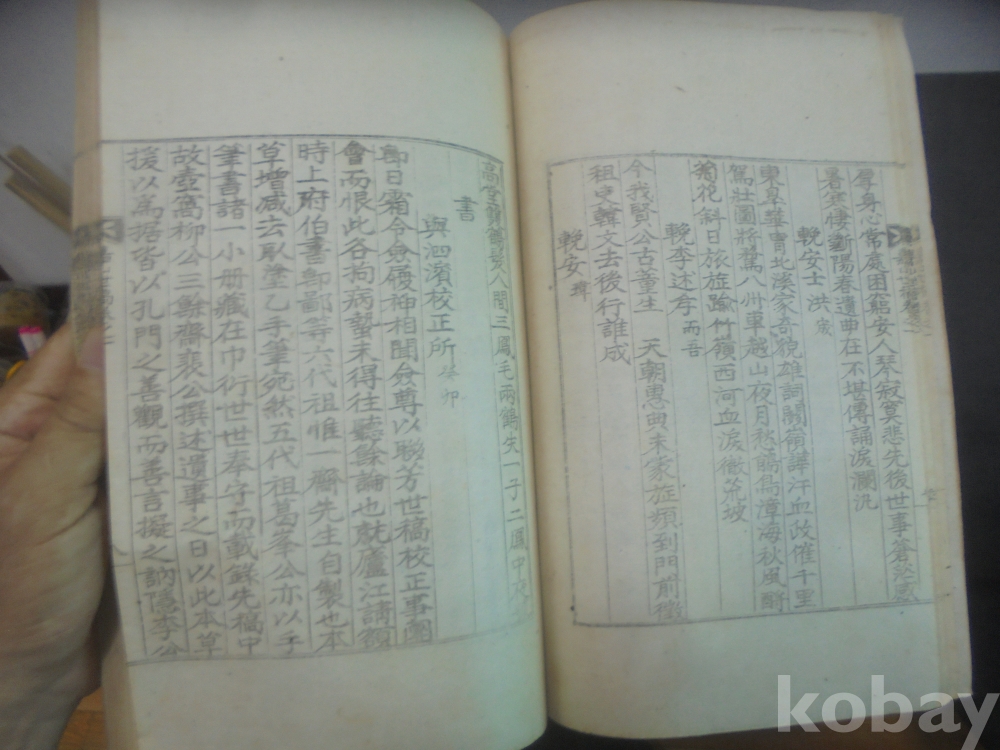 辱身心常處困窮安人琴寂寞悲先後世事蒼茫感
暑寒棲斷陽春遺曲在不堪傳誦淚瀾汍
輓安士洪
東 曹北溪家奇貌雄詞關 譁汗血政催千里
駕壯圖將驁八州車越山夜月愁 潭海秋風酹
菊花斜日旅 踰竹嶺西河血淚徹 坡
輓李述 而吾
今我賢公古董生 天朝惠 末家 頻到門前
祖史韓文去後行誰成
輓安
高堂 鶴髮人間三鳳毛兩鶴失一子二鳳中
書
與泗濱校正所 癸卯
卽日霜令僉履神相聞僉尊以聯芳世稿校正事團
會而恨此各拘病蟄未得往聽餘論也就廬江請額
時上府伯書 鄙等六代祖惟一齋先生自製也本
草增減去取塗乙手筆宛然五代祖葛峯公亦以手
筆書諸一小册藏在巾衍世世奉守而載錄先稿中
故壺窩柳公三 齋裵公撰述遺事之日以此本草
援以爲據皆以孔門之善觀而善言擬之訥隱李公
kobay